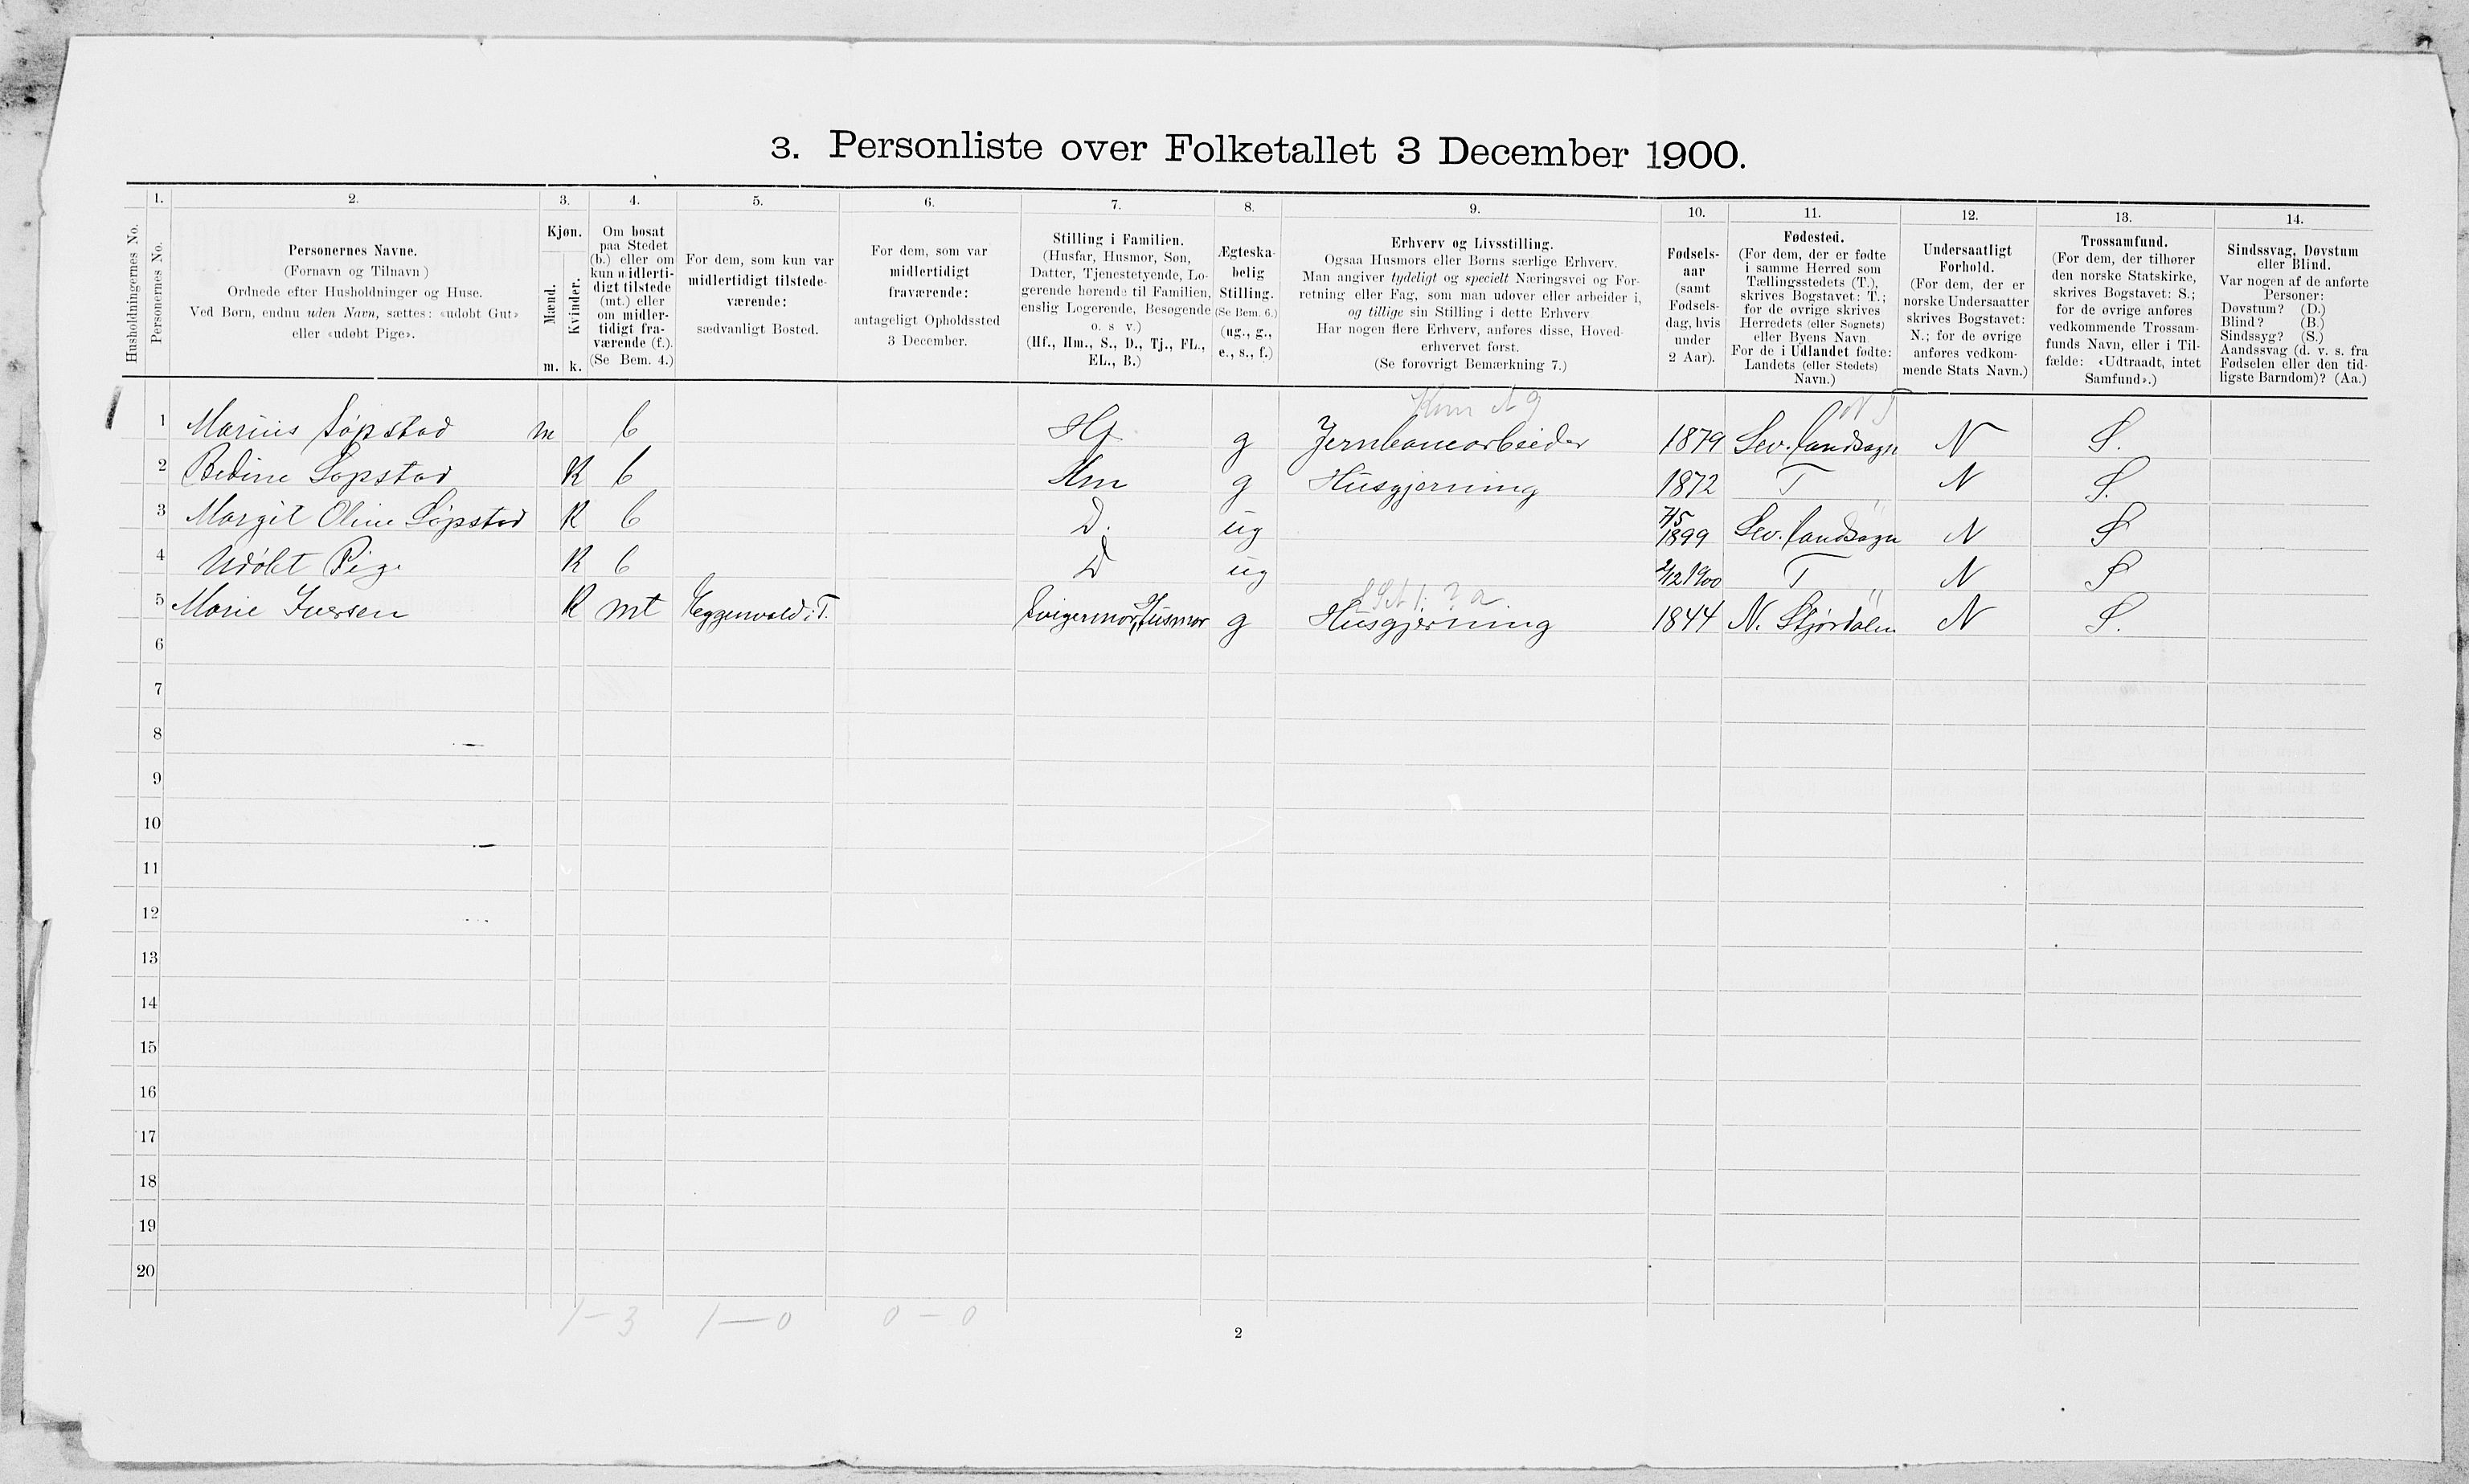 3. Personliste over Folketallet 3 December 1900.
1. 2. 3. 4. 5. 6. 7. 8. 9. 10. 11. 12. 13. 14.
Husholdningernes No.
Personernes No.
Personernes Navne.
(Fornavn og Tilnavn)
Ordnede efter Husholdninger og Huse.
Ved Børn, endnu uden Navn, sættes: «udøbt Gut»
eller «udøbt Pige».
Kjøn.
Mænd.
Kvinder.
m. k.
Om bosat
paa Stedet
(b.) eller om
kun midlerti-
digt tilstede
(mt.) eller
om midler-
tidigt fra-
værende (f.).
(Se Bem. 4.)
For dem, som kun var
midlertidigt tilstede-
værende:
sædvanligt Bosted.
For dem, som var
midlertidigt
fraværende:
antageligt Opholdssted
3 December.
Stilling i Familien.
(Husfar, Husmor, Søn,
Datter, Tjenestetyende, Lo-
gerende hørende til Familien,
enslig Logerende, Besøgende
o. s v.)
(Hf., Hm., S., D., Tj., FL.,
EL., B.)
Ægteska-
belig
Stilling.
(Se Bem. 6.)
(ug., g.,
e., s., f.)
Erhverv og Livsstilling.
Ogsaa Husmors eller Børns særlige Erhverv.
Man angiver tydeligt og specielt Næringsvei og For-
retning eller Fag, som man udøver eller arbeider i,
og tillige sin Stilling i dette Erhverv
Har nogen flere Erhverv, anføres disse, Hoved-
erhvervet først.
(Se forøvrigt Bemærkning 7.)
Fødsels-
aar
(samt
Fødsels-
dag, hvis
under
2 Aar).
Fødested.
(For dem, der er fødte
i samme Herred som
Tællingsstedets (T.),
skrives Bogstavet: T.;
for de øvrige skrives
Herredets (eller Sognets)
eller Byens Navn.
For de i Udlandet fødte:
Landets (eller Stedets)
Navn.)
Undersaatligt
Forhold.
(For dem, der er
norske Undersaatter
skrives Bogstavet:
N.; for de øvrige
anføres vedkom-
mende Stats Navn.)
Trossamfund.
(For dem, der tilhører
den norske Statskirke,
skrives Bogstavet: S.;
for de øvrige anføres
vedkommende Trossam-
funds Navn, eller i Til-
fælde: «Udtraadt, intet
Samfund».)
Sindssvag, Døvstum
eller Blind.
Var nogen af de anførte
Personer:
Døvstum? (D.)
Blind? (B.)
Sindssyg? (S.)
Aandssvag (d. v. s. fra
Fødselen eller den tid-
ligste Barndom)? (Aa.)
1 Marius Søpstad m b Hf g Jernbanearbeider 1879 Lev. landsogn N S.
2 Bedine Sopstad K b Hm g Husgjerning 1872 T N S.
3 Margit Oline Søpstad K b D. ug 7/5 1899 Lev. landsogn N S
4 Udøbt Pige K b D ug 2/12 1900 T N S
5 Marie Iversen K mt Eggenvold i T. Svigermor, Husmor g Husgjerning 1844 N. Stjørdalen N S.
6
7
8
9
10
11
12
13
14
15
16
17
18
19
20
1 – 3 1 – 0 0 – 0
2